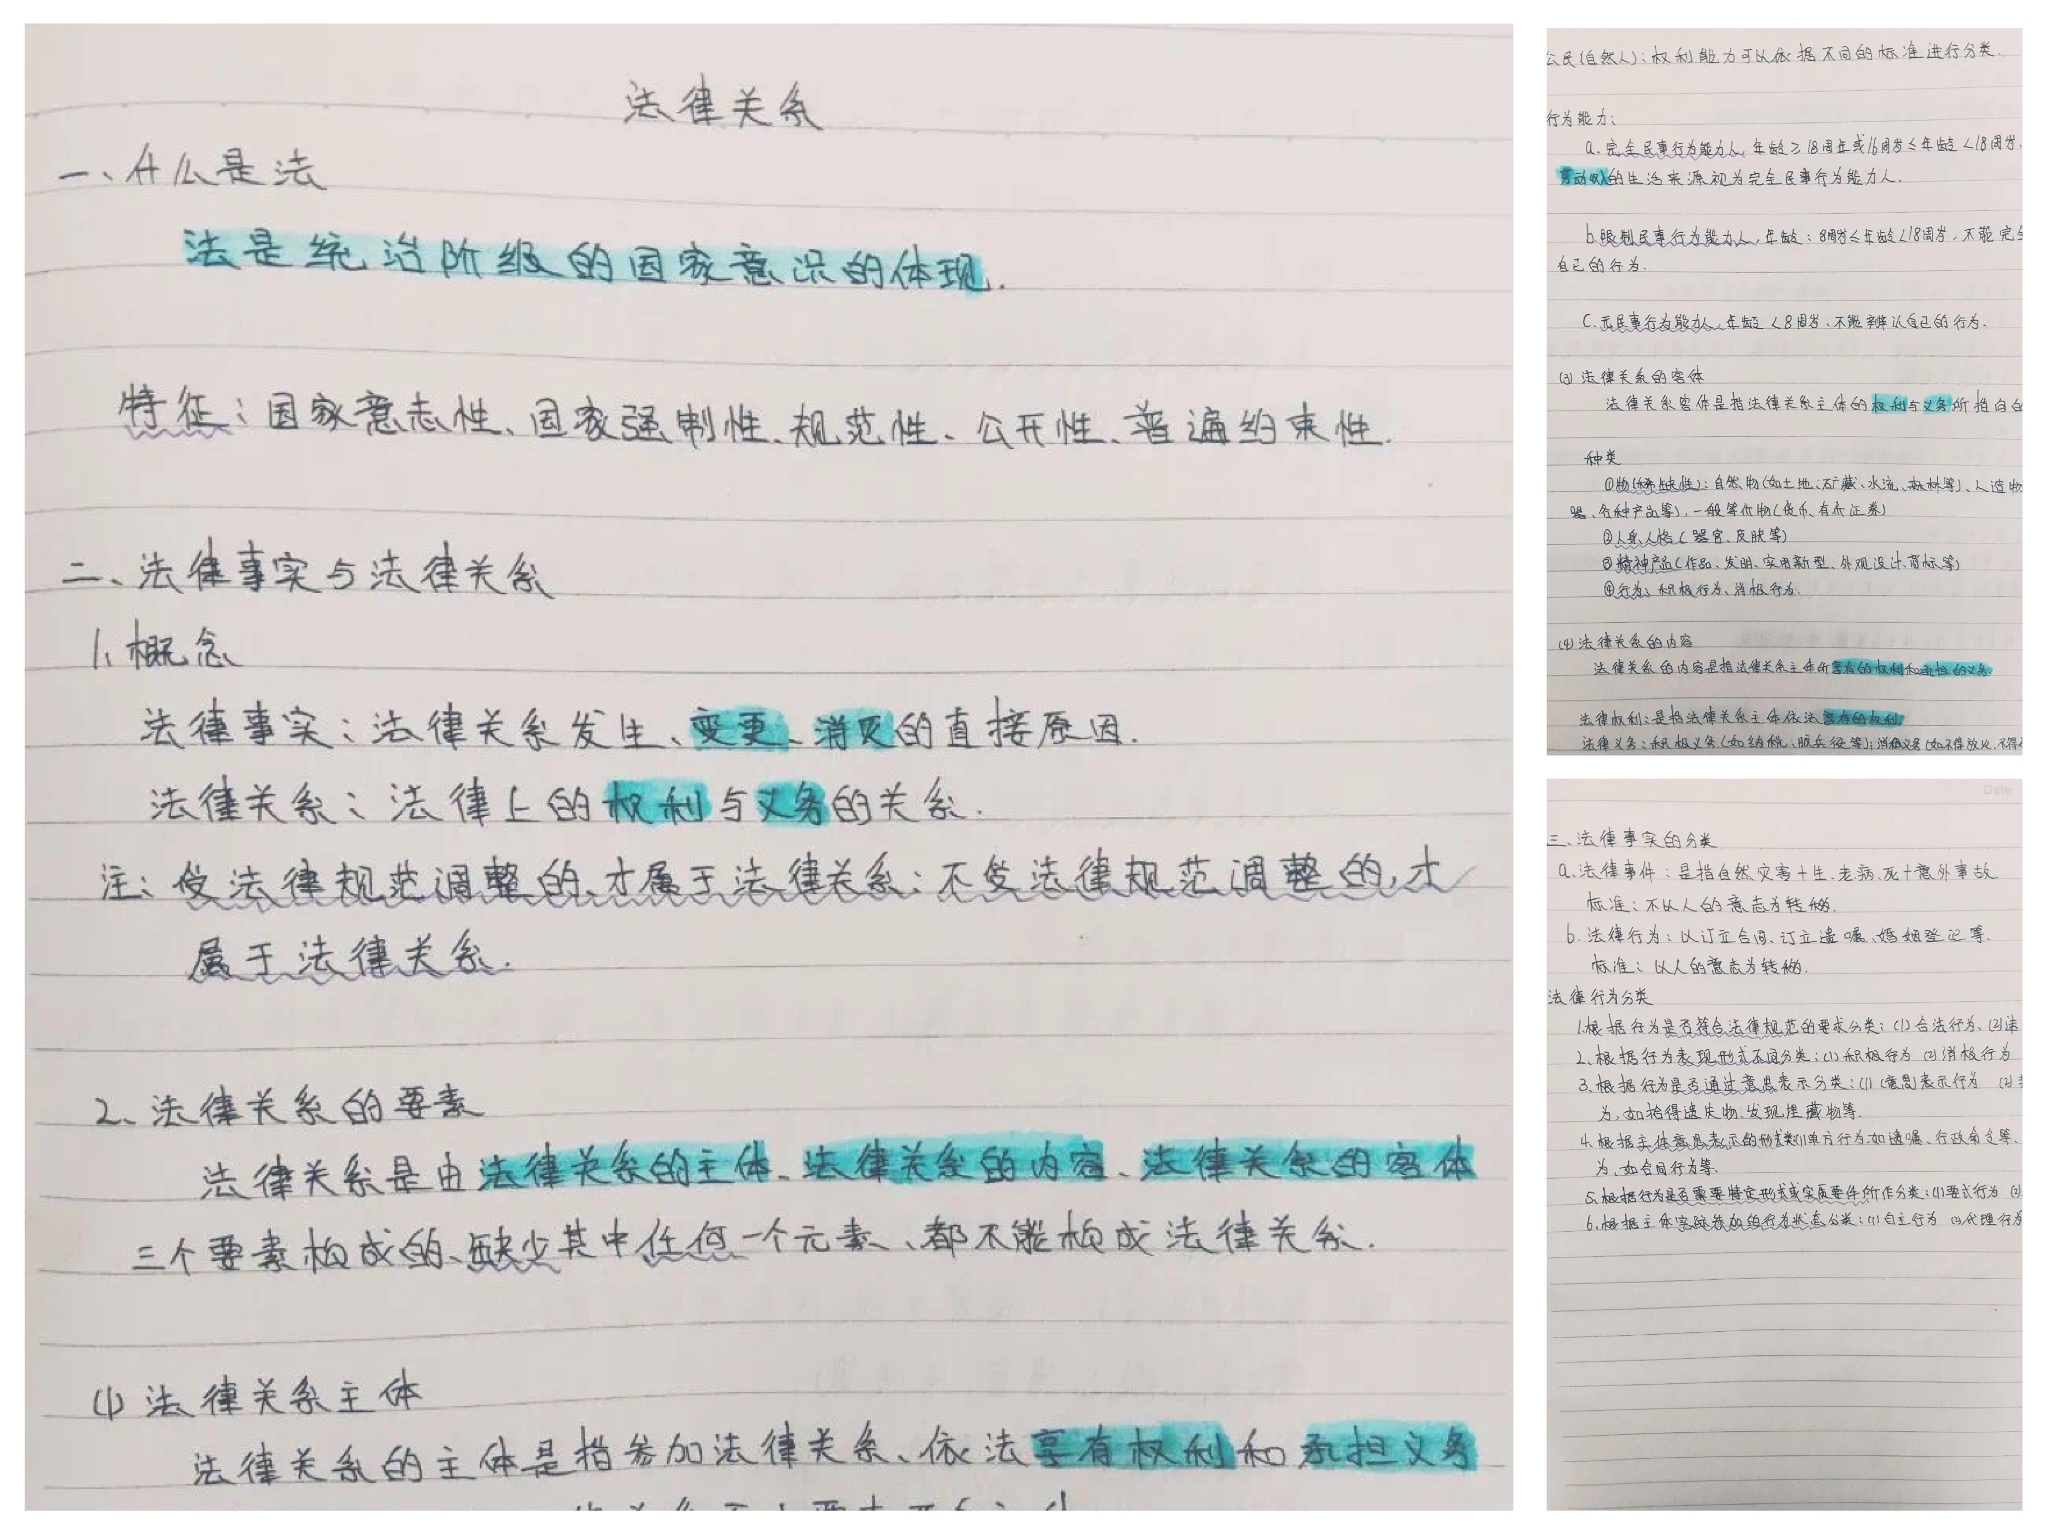 法律关系
一、什么是法
法是统治阶级的国家意识的体现.
特征：国家意志性、国家强制性、规范性、公开性、普遍约束性.
二、法律事实与法律关系
1、概念
法律事实：法律关系发生、变更、消灭的直接原因.
法律关系：法律上的权利与义务的关系.
注：受法律规范调整的、才属于法律关系；不受法律规范调整的,才
属于法律关系.
2、法律关系的要素
法律关系是由法律关系的主体、法律关系的内容、法律关系的客体
三个要素构成的、缺少其中任何一个元素、都不能构成法律关系.
(1) 法律关系主体
法律关系的主体是指参加法律关系、依法享有权利和承担义务
公民(自然人)：权利能力可以依据不同的标准进行分类.
行为能力：
a. 完全民事行为能力人,年龄≥18周年或16周岁≤年龄<18周岁、
劳动收的生活来源视为完全民事行为能力人.
b.限制民事行为能力人,年龄：8周岁≤年龄<18周岁,不能完全
自己的行为.
C.无民事行为能力人、年龄<8周岁、不能辨认自己的行为.
(3) 法律关系的客体
法律关系客体是指法律关系主体的权利与义务所指向的
种类
①物(稀缺性)：自然物(如土地、矿藏、水流、森林等)、人造物
器、各种产品等),一般等价物(货币、有价证券)
②人身人格(器官、皮肤等)
③精神产品(作品、发明、实用新型、外观设计、商标等)
④行为：积极行为、消极行为.
(4) 法律关系的内容
法律关系的内容是指法律关系主体所享有的权利和承担的义务
法律权利：是指法律关系主体依法享有的权利
法律义务：积极义务(如纳税、服兵役等)；消极义务(如不得放火、不得
Date
三、法律事实的分类
a.法律事件：是指自然灾害+生、老、病、死+意外事故
标准：不以人的意志为转移.
b. 法律行为：以订立合同、订立遗嘱、婚姻登记等.
标准：以人的意志为转移.
法律行为分类
1.根据行为是否符合法律规范的要求分类：(1)合法行为、(2)违
2、根据行为表现形式不同分类：(1)积极行为 (2)消极行为
3、根据行为是否通过意思表示分类：(1)(意思)表示行为 (2)
为,如拾得遗失物、发现埋藏物等.
4、根据主体意思表示的形式类(1)单方行为如遗嘱、行政命令等、
为、如合同行为等.
5、根据行为是否需要特定形式或实质要件所作分类：(1)要式行为 (2)
6、根据主体实际参加的行为状态分类：(1)自主行为 (2)代理行为